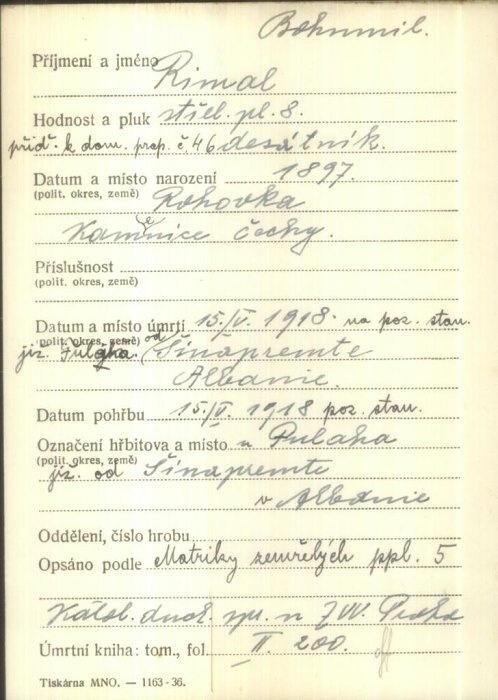 Bohumil.
Příjmení a jméno Rimal
Hodnost a pluk střel. pl. 8.
přiď. k dom. prap. č. 46 desátník.
Datum a místo narození 1897.
(polit. okres, země) Rohovka
Kamenice Čechy.
Příslušnost
(polit. okres, země)
Datum a místo úmrtí 15./V. 1918. na poz. stan.
(polit. okres, země) od
již. Pulaha. (Sinapremte
Albanie.
Datum pohřbu 15./V. 1918 poz. stan.
Označení hřbitova a místo u Pulaha
(polit. okres, země)
již. od Sinapremte
v Albanie
Oddělení, číslo hrobu
Opsáno podle Matriky zemřelých ppl. 5
Katol. duch. spr. n ZVV. Praha
Úmrtní kniha: tom., fol. II. 200.
Tiskárna MNO. — 1163-36.